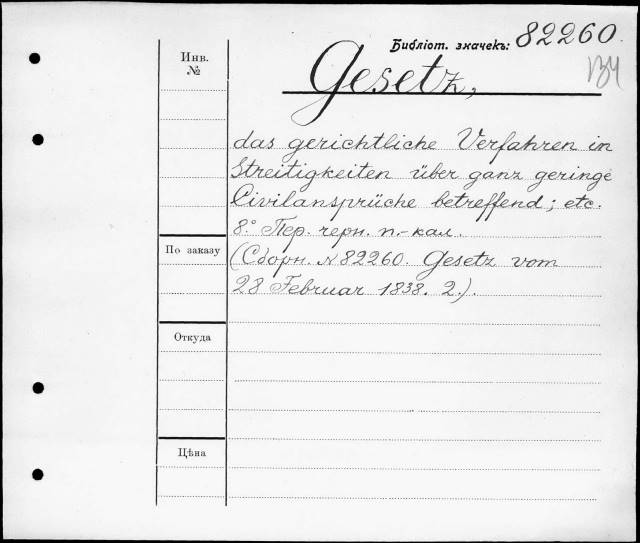 Библіот. значекъ: 82260.
134
Инв.
№
Gesetz,
das gerichtliche Verfahren in
Streitigkeiten über ganz geringe
Civilansprüche betreffend; etc.
8.° Пер. черн. п.-кал.
По заказу
(Сборн. № 82260. Gesetz vom
28 Februar 1838. 2.).
Откуда
Цѣна